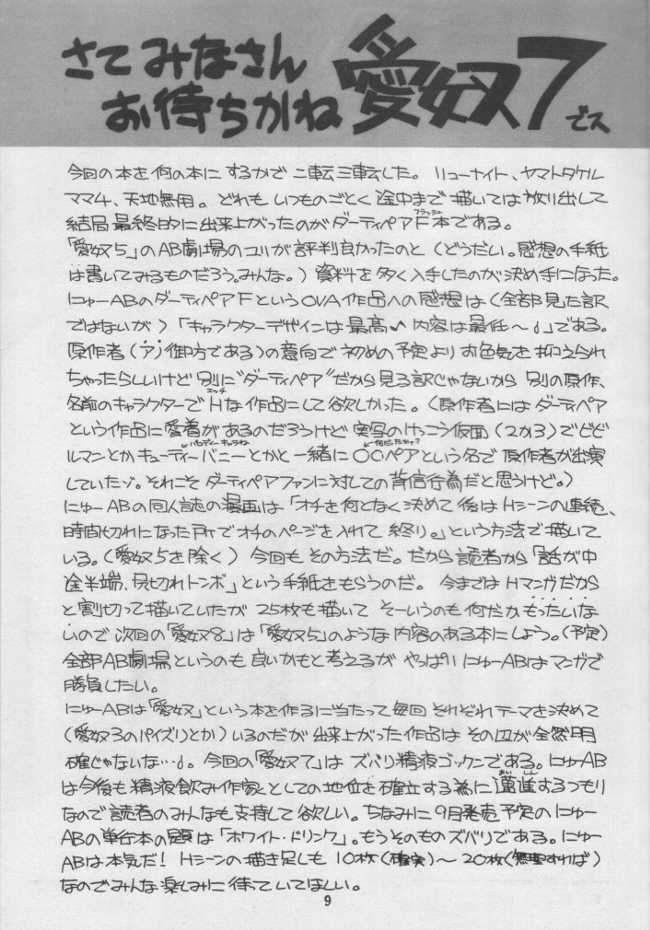 さてみなさん
お待ちかね 愛奴7 でス
今回の本を何の本にするかで二転三転した。リューナイト、ヤマトタケル
ママ4、天地無用。どれもいつものごとく途中まで描いては放り出して
結局最終的に出来上がったのがダーティペアF本である。
フラッシュ
「愛奴5」のAB劇場のユリが評判良かったのと(どうだい。感想の手紙
は書いてみるものだろう。みんな。)資料を多く入手したのが決め手になった。
にゅーABのダーティペアFというOVA作品への感想は(全部見た訳
ではないが)「キャラクターデザインは最高♪内容は最低〜」である。
原作者(ア)御方である)の意向で初めの予定よりお色気を抑えられ
ちゃったらしいけど別に"ダーティペア"だから見る訳じゃないから別の原作、
名前のキャラクターでHな作品にして欲しかった。(原作者にはダーティペア
エッチ
という作品に愛着があるのだろうけど実写のけっこう仮面(2か3)でビビ
ルマンとかキューティーバニーとかと一緒に〇〇ペアという名で原作者が出演
していたゾ。それこそダーティペアファンに対しての背信行為だと思うけど。)
にゅーABの同人誌の漫画は「オチを何となく決めて後はHシーンの連続、
時間切れになった所でオチのページを入れて終り。」という方法で描いて
いる。(愛奴5を除く)今回もその方法だ。だから読者から「話が中
途半端、尻切れトンボ」という手紙をもらうのだ。今まではHマンガだから
と割切って描いていたが25枚も描いてそーいうのも何だかもったいな
いので次回の「愛奴8」は「愛奴5」のような内容のある本にしよう。(予定)
全部AB劇場というのも良いかもと考えるがやっぱりにゅーABはマンガで
勝負したい。
にゅーABは「愛奴」という本を作るに当たって毎回それぞれテーマを決めて
(愛奴3のパイズリとか)いるのだが出来上がった作品はその辺が全然明
確じゃないな…。今回の「愛奴7」はズバリ精液ゴックンである。にゅーAB
は今後も精液飲み作家としての地位を確立する為に邁進するつもり
まいしん
なので読者のみんなも支持して欲しい。ちなみに9月発売予定のにゅー
ABの単行本の題は「ホワイト・ドリンク」。もうそのものズバリである。にゅー
ABは本気だ!Hシーンの描き足しも10枚(確実)〜20枚(無理すれば)
なのでみんな楽しみに待っていてほしい。
9